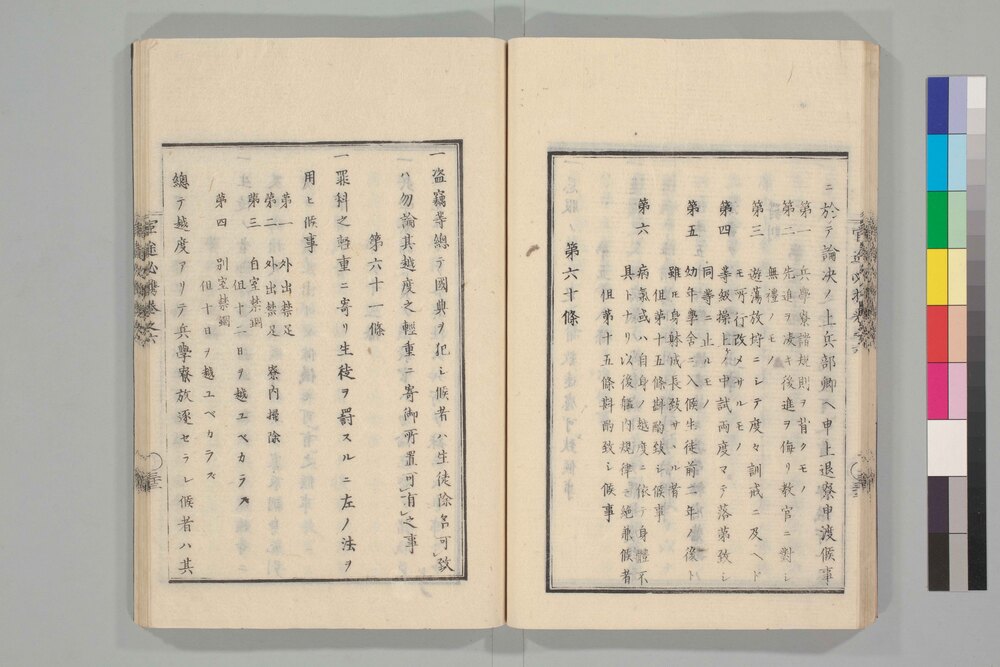 ニ於テ論决ノ上兵部卿ヘ申上退寮申渡候事
第一 兵學寮諸規則ヲ背クモノ
第二 先進ヲ凌キ後進ヲ侮リ教官ニ對シ
無禮ノモノ
第三 遊蕩放埓ニシテ度々訓戒ニ及ヘトモ
所行改メサルモノ
第四 等級操上ノ中試両度マテ落第致シ
同等ニ止ルモノ
第五 幼年學舎ニ入候生徒前二年ノ後ト
雖𪜈身躰成長致サヽル者
但第十五條斟酌致シ候事
第六 病氣或ハ自身ノ越度ニ依テ身體不
具トナリ以後艦内規律ニ絶兼候者
但第十五條斟酌致シ候事
第六十條
一 盗竊等總テ國典ヲ犯シ候者ハ生徒除名可致
ハ勿論其越度之輕重ニ寄御所置可有之事
第六十一條
一 罪科之輕重ニ寄リ生徒ヲ罰スルニ左ノ法ヲ
用ヒ候事
第一 外出禁足
第二 外出禁足寮内掃除
第三 自室禁錮
但十日ヲ越ユベカラズ
第四 別室禁錮
但十日ヲ越ユベカラズ
總テ越度アリテ兵學寮放逐セラレ候者ハ其